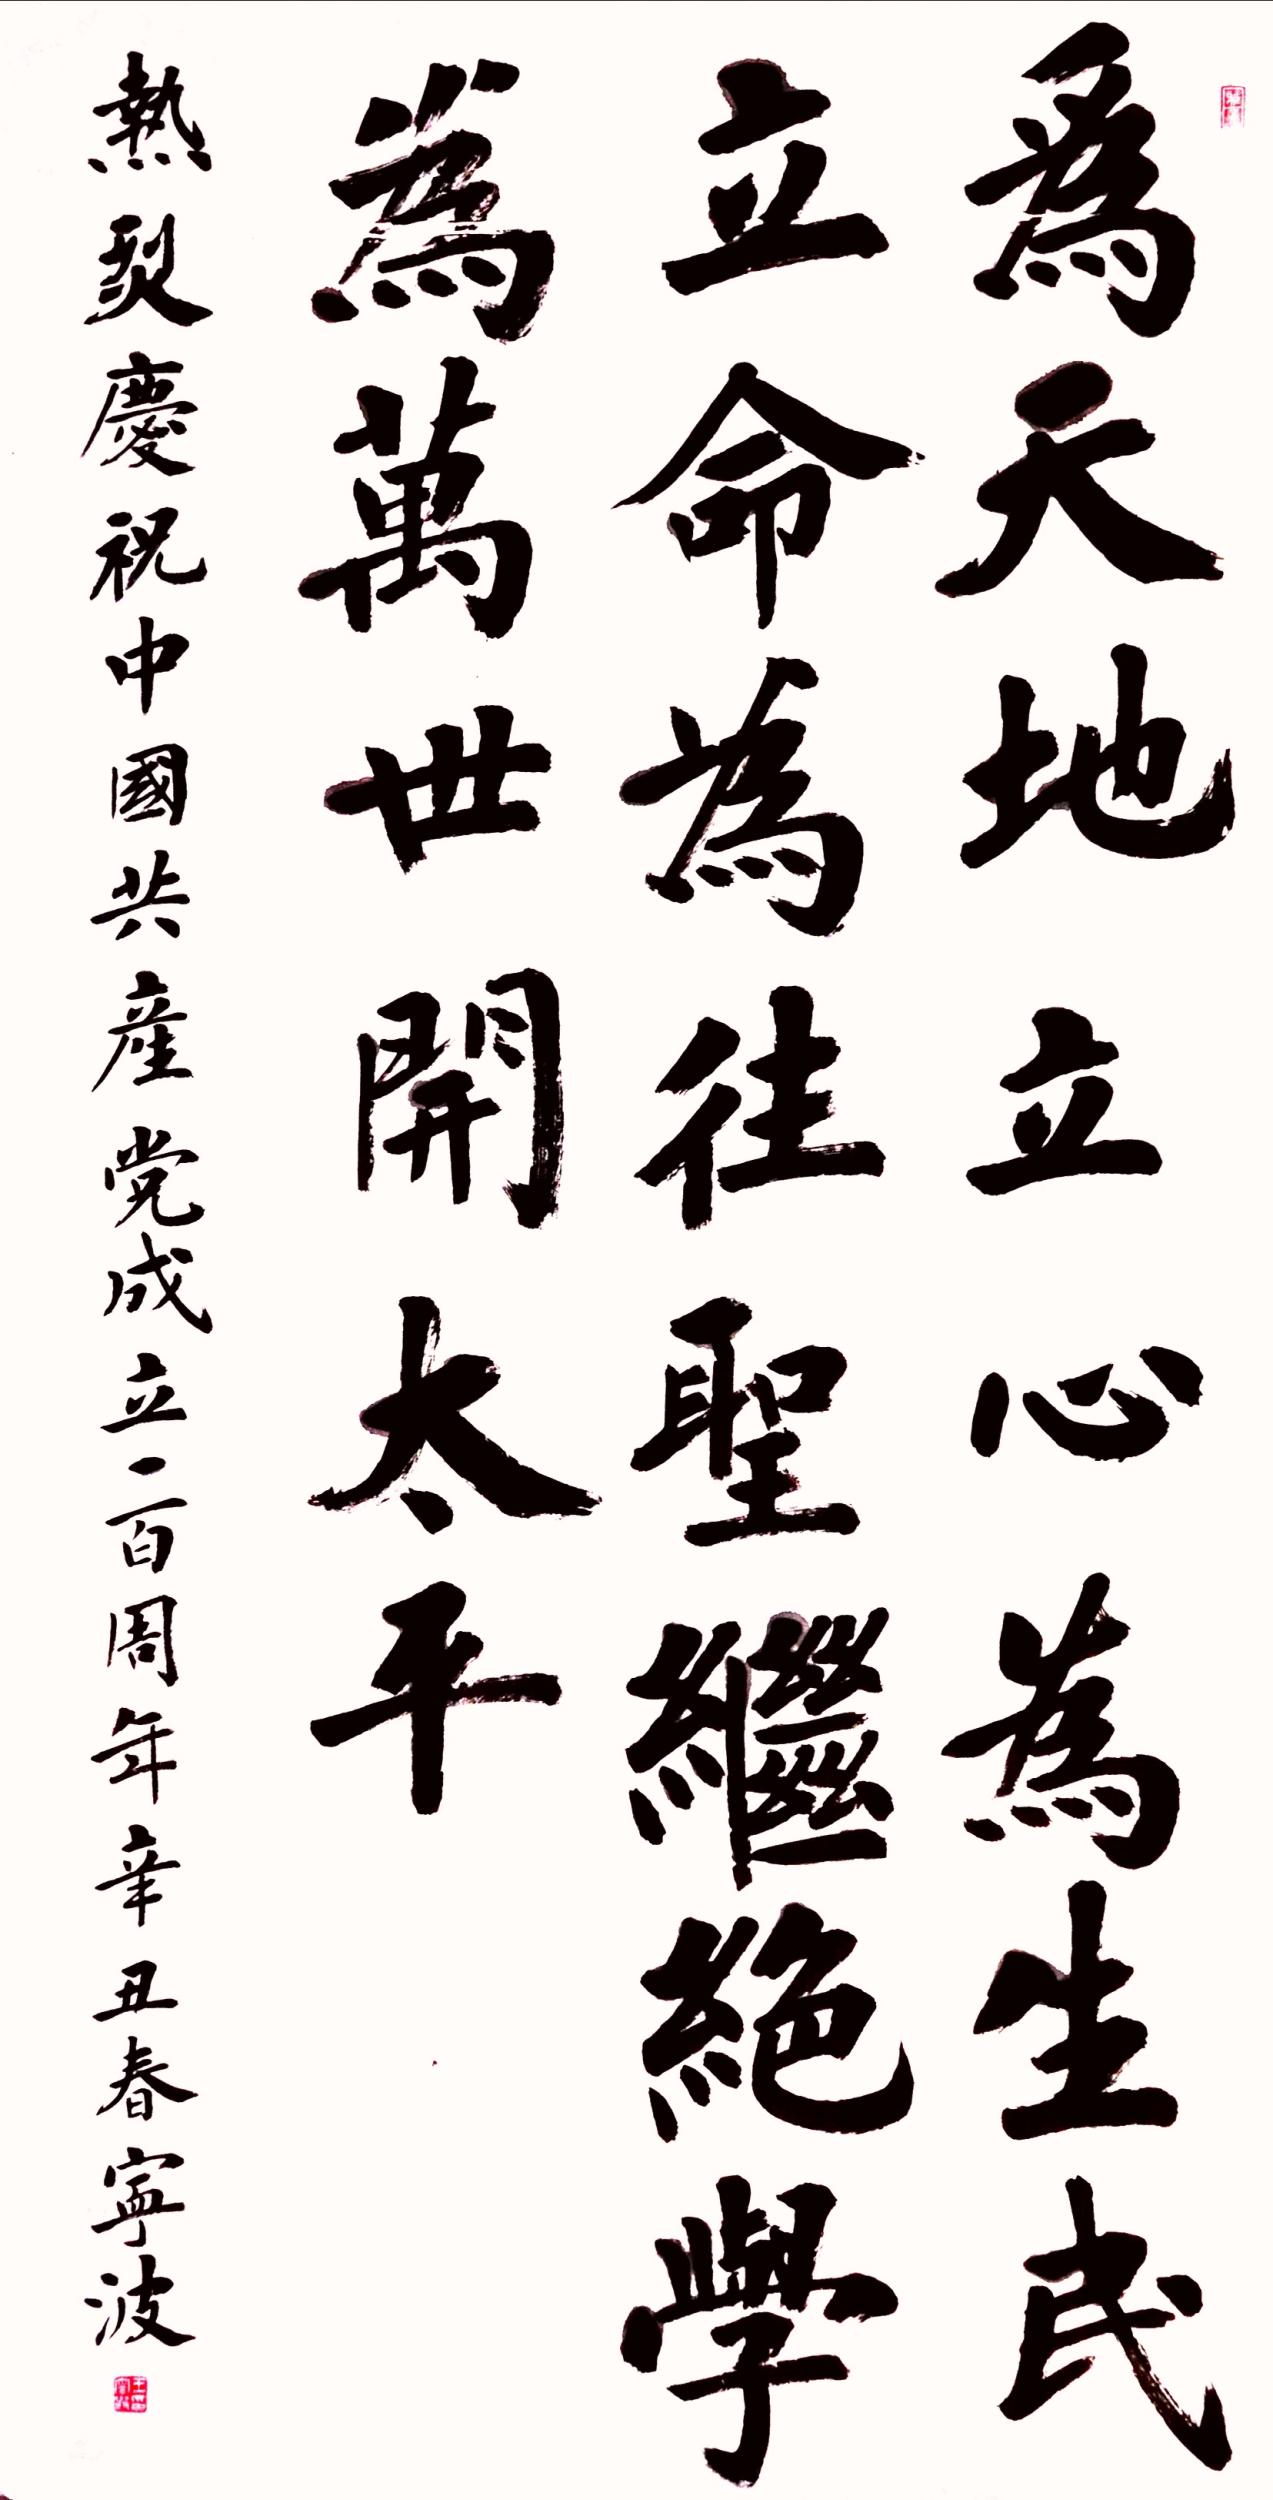 為天地立心為生民
立命為往聖繼絕學
為萬世開太平
熱烈慶祝中國共産党成立一百周年辛丑春寧波